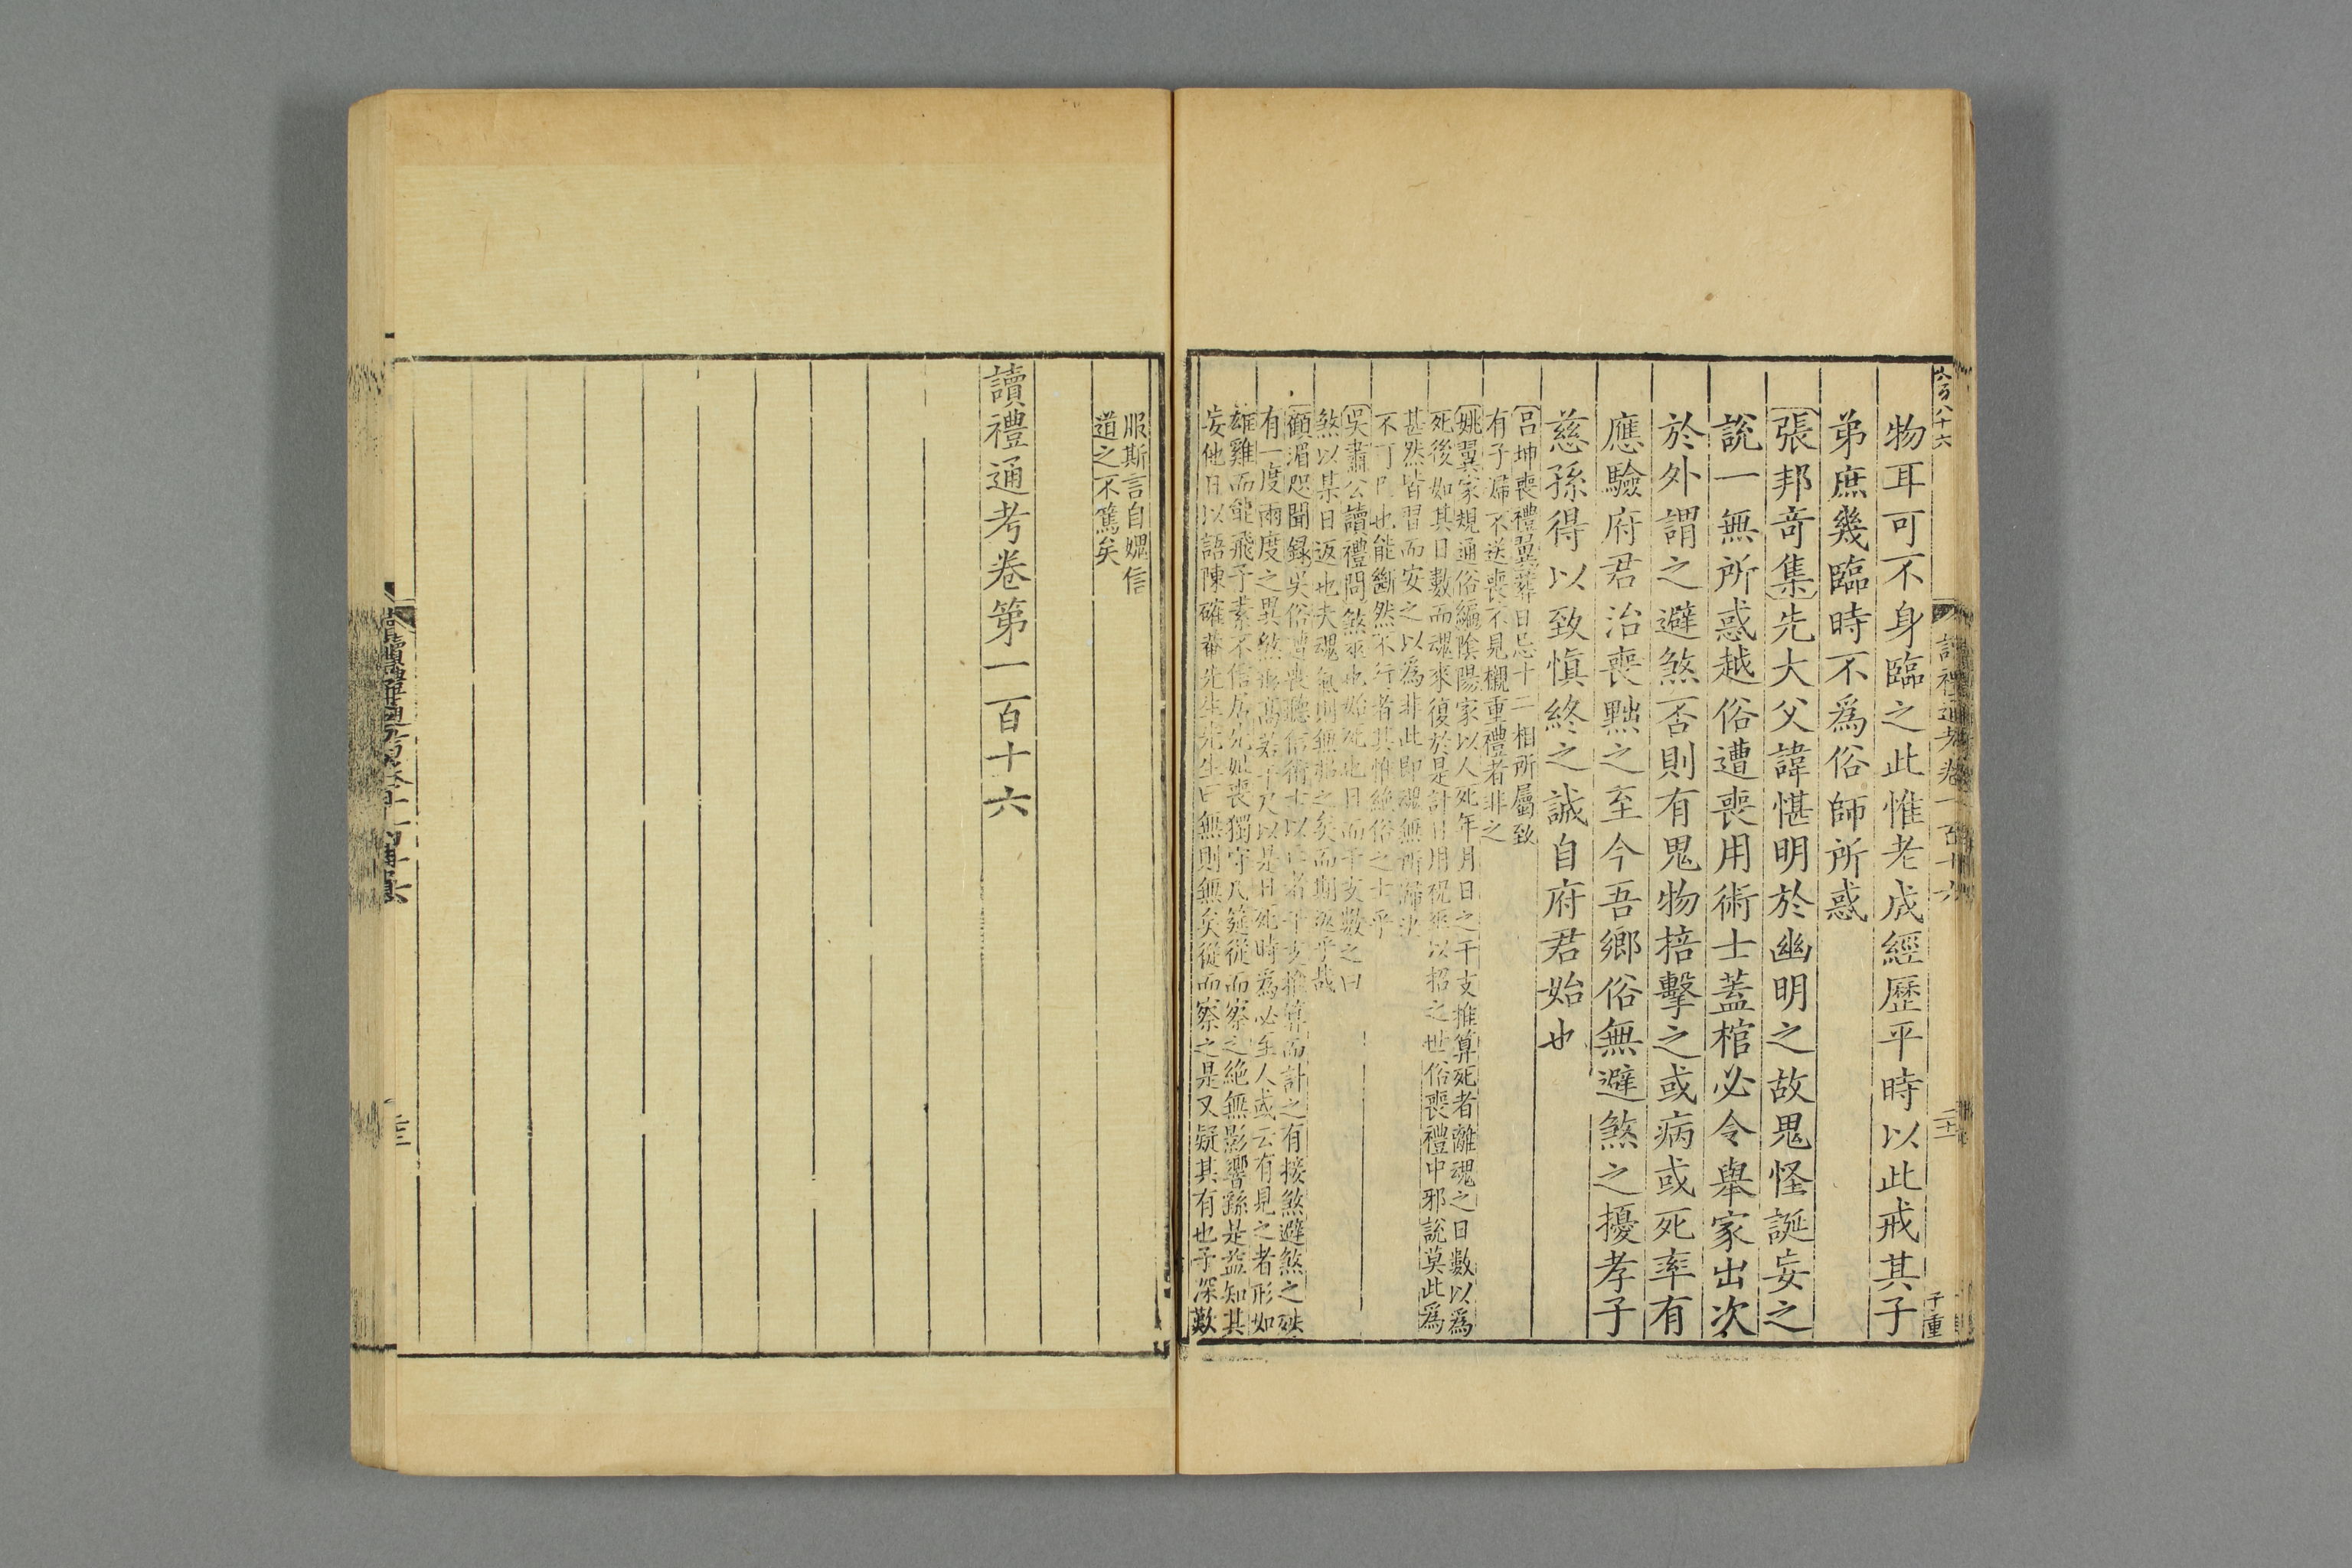 六百八十六
讀禮通考卷一百十六
二十二
子重
物耳可不身臨之此惟老成經歷平時以此戒其子
弟庶幾臨時不爲俗師所惑
張邦奇集先大父諱愖明於幽明之故鬼怪誕妄之
說一無所惑越俗遭喪用術士蓋棺必令舉家出次
於外謂之避煞否則有鬼物掊擊之或病或死率有
應驗府君治喪黜之至今吾鄉俗無避煞之擾孝子
慈孫得以致慎終之誠自府君始也
呂坤喪禮翼葬日忌十二相所屬致
有子歸不送喪不見櫬重禮者非之
姚翼家規通俗編陰陽家以人死年月日之干支推算死者離魂之日數以爲
死後如其日數而魂來復於是計日用祝巫以招之世俗喪禮中邪說莫此爲
甚然皆習而安之以爲非此即魂無所歸
不可也能斷然不行者其惟絶俗之士乎
吳肅公讀禮問煞來也始死也日而干支數之曰
煞以某日返也夫魂氣則無不之矣而期返乎哉
顧湄咫聞録吳俗遭喪聽信術士以亡者干支推算而計之有接煞避煞之殃
有一度兩度之異煞高若干尺以是日死時爲必至人或云有見之者形如
雄雞而能飛予素不信居先妣喪獨守几筵從而察之絶無影響繇是益知其
妄他日以語陳確菴先生先生曰無則無矣從而察之是又疑其有也予深歎
服斯言自媿信
道之不篤矣
讀禮通考卷第一百十六